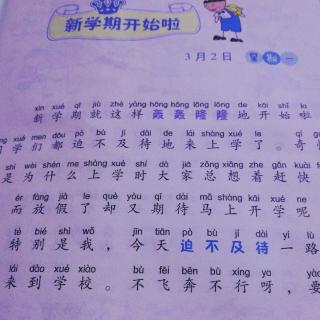 新学期开始啦
3月2日 星期一
xīn xué qī jiù zhè yàng hōng hōng lōng lōng de kāi shǐ la
新学期就这样轰轰隆隆地开始啦
xué men dōu pò bù jí dài de lái shàng xué le
学们都迫不及待地来上学了。奇
shì wèi shén me shàng xué shí dà jiā zǒng xiǎng zhe gǎn kuài
是为什么上学时大家总想着赶快
ér fàng jià le què yòu qī dài mǎ shàng kāi xué ne
而放假了却又期待马上开学呢
tè bié shì wǒ jīn tiān pò bù jí dài yí lù
特别是我,今天迫不及待一路
lái dào xué xiào bù fēi bēn bù xíng ya
来到学校。不飞奔不行呀,要